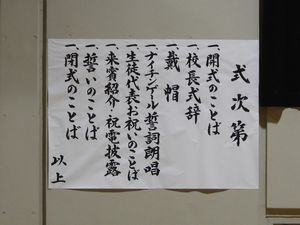 式次第
一、開式のことば
一、校長式辞
一、戴帽
一、ナイチンゲール誓詞朗唱
一、生徒代表お祝いのことば
一、来賓紹介・祝電披露
一、誓いのことば
一、閉式のことば
以上